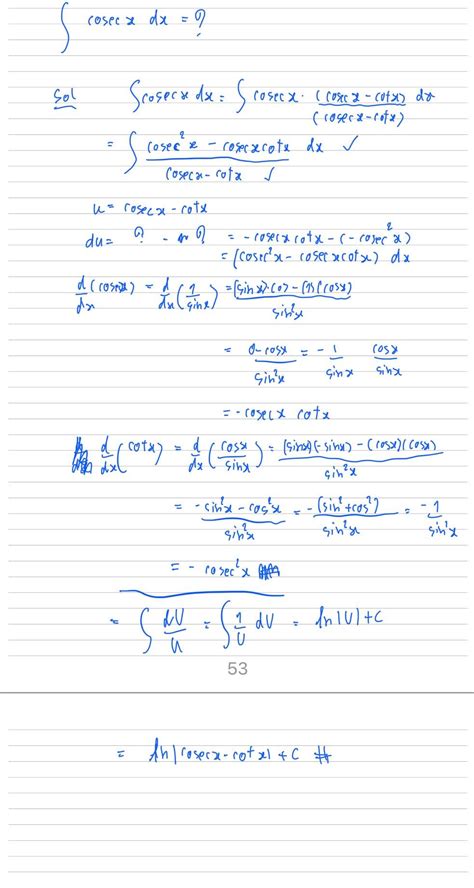 ∫ cosec x dx = ?
Sol ∫ cosec x dx = ∫ cosec x · (cosec x - cot x)/(cosec x - cot x) dx
= ∫ (cosec²x - cosec x cot x)/(cosec x - cot x) dx ✓ ✓
u = cosec x - cot x
du = ? - ? = -cosec x cot x - (-cosec²x)
= (cosec²x - cosec x cot x) dx
d/dx (cosec x) = d/dx (1/sin x) = ((sin x)·(0) - (1)(cos x))/sin²x
= (0 - cos x)/sin²x = -1/sin x cos x/sin x
= -cosec x cot x
d/dx (cot x) = d/dx (cos x/sin x) = ((sin x)(-sin x) - (cos x)(cos x))/sin²x
= (-sin²x - cos²x)/sin²x = -(sin² + cos²)/sin²x = -1/sin²x
= -cosec²x
= ∫ dU/u = ∫ 1/U dU = ln|U| + C
53
= ln|cosec x - cot x| + C #